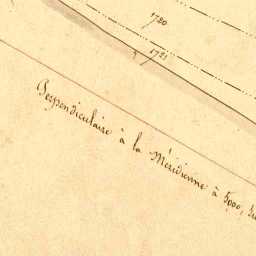 1720
1721
Perpendiculaire à la Méridienne à 5000,